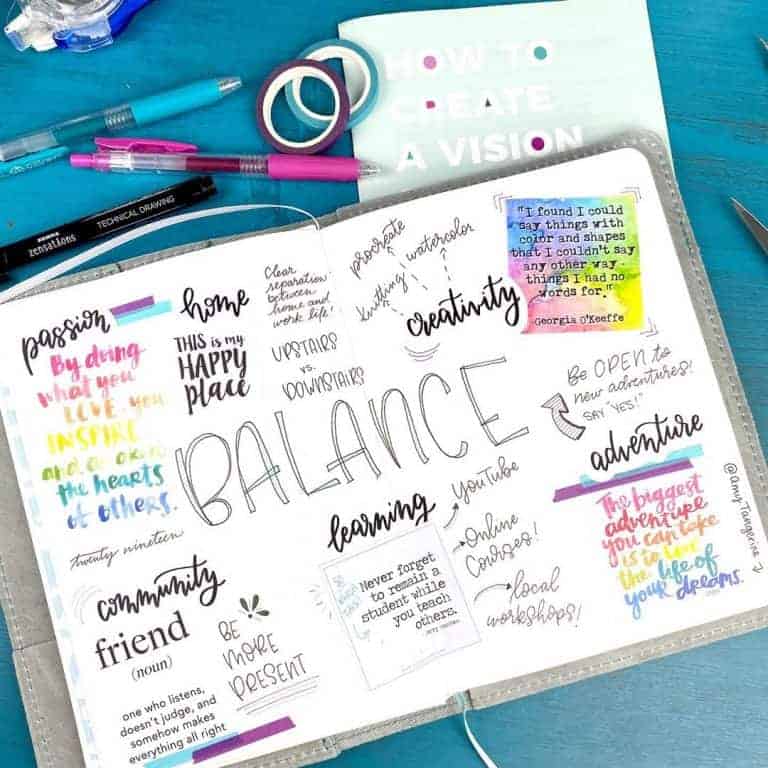 HOW TO
CREATE
A VISION
TECHNICAL DRAWING
zensations
passion
By doing
what you
LOVE, you
INSPIRE
the hearts
of others.
twenty nineteen
home
THIS is my
HAPPY
place
Clear
separation
between
home and
work life!
UPSTAIRS
vs.
DOWNSTAIRS
procreate
watercolor
knitting
creativity
"I found I could
say things with
color and shapes
that I couldn't say
any other way...
things I had no
words for."
Georgia O'Keeffe
BALANCE
Be OPEN to
new adventures!
SAY "YES!"
adventure
The biggest
adventure
you can take
is to live
the life of
your dreams.
@AmyTangerine
community
friend
(noun)
one who listens,
doesn't judge, and
somehow makes
everything all right
BE
MORE
PRESENT
learning
Never forget
to remain a
student while
you teach
others.
YouTube
Online
Courses!
local
workshops!